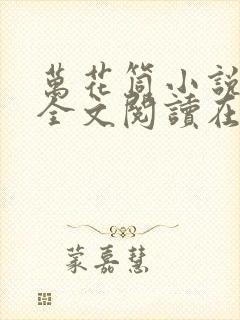 萬花筒小說
全文閱讀在
蒙嘉慧